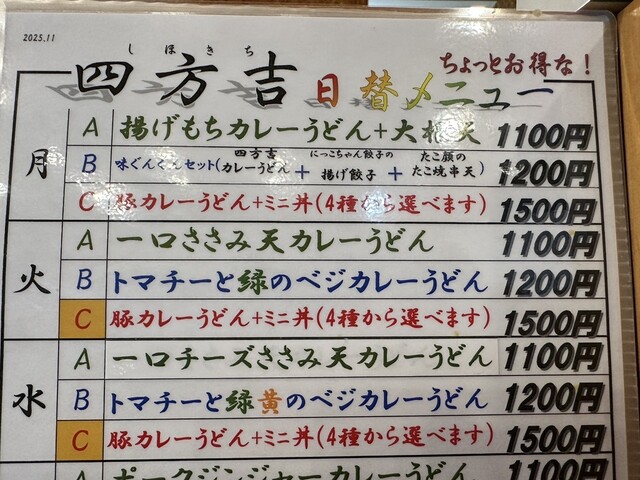 2025.11
しほきち
四方吉 日替メニュー
ちょっとお得な!
月
A 揚げもちカレーうどん+大 天 1100円
B 味ぐんぐんセット(四方吉カレーうどん+にっこちゃん餃子の揚げ餃子+たこ顔のたこ焼串天) 1200円
C 豚カレーうどん+ミニ丼(4種から選べます) 1500円
火
A 一口ささみ天カレーうどん 1100円
B トマチーと緑のベジカレーうどん 1200円
C 豚カレーうどん+ミニ丼(4種から選べます) 1500円
水
A 一口チーズささみ天カレーうどん 1100円
B トマチーと緑黄のベジカレーうどん 1200円
C 豚カレーうどん+ミニ丼(4種から選べます) 1500円
A ポークジンジャーカレーうどん 1100円